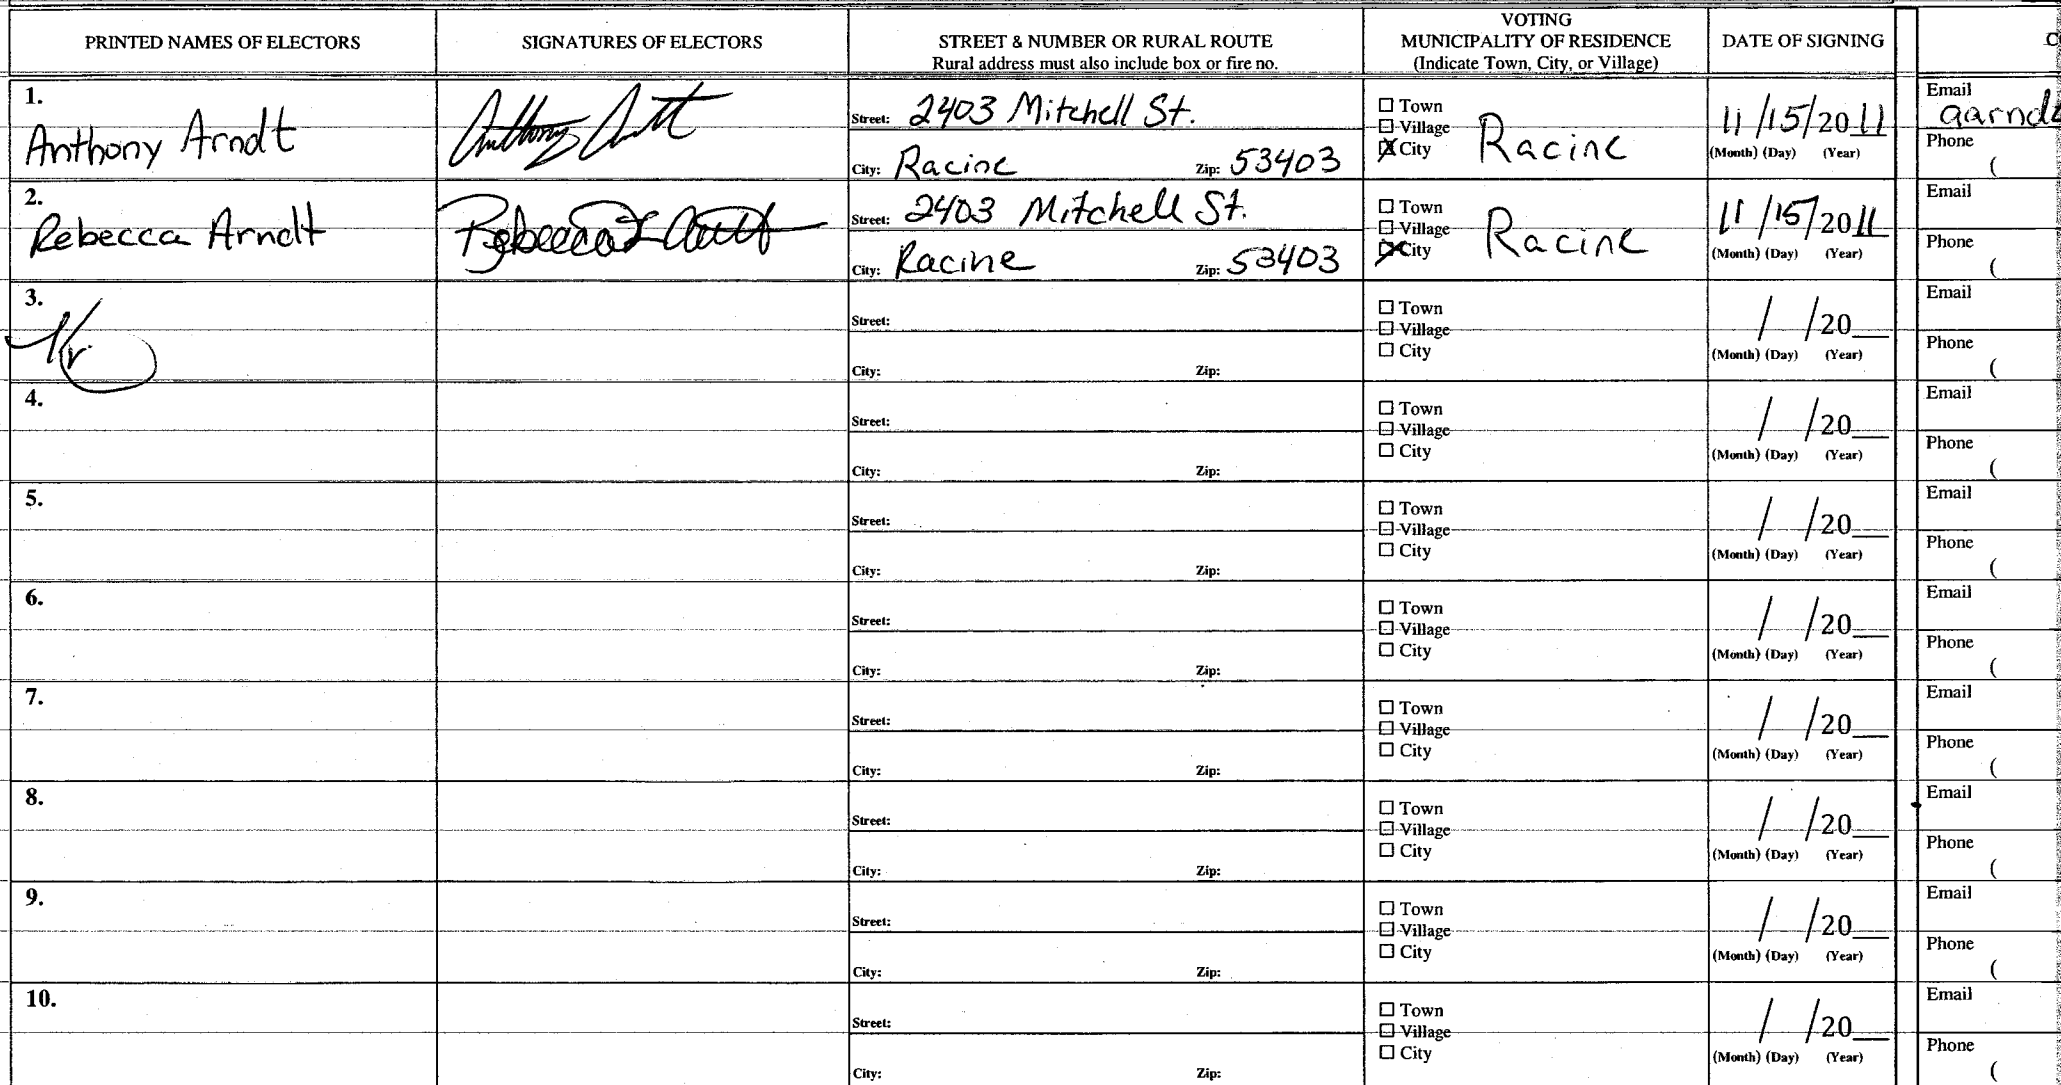 PRINTED NAMES OF ELECTORS
SIGNATURES OF ELECTORS
STREET & NUMBER OR RURAL ROUTE
Rural address must also include box or fire no.
VOTING
MUNICIPALITY OF RESIDENCE
(Indicate Town, City, or Village)
DATE OF SIGNING
1.
Anthony Arndt
Anthony Arndt
Street: 2403 Mitchell St.
City: Racine Zip: 53403
☐ Town
☐ Village
☒ City
Racine
11/15/2011
(Month) (Day) (Year)
Email
aarndt
Phone
(
2.
Rebecca Arndt
Rebecca L Arndt
Street: 2403 Mitchell St.
City: Racine Zip: 53403
☐ Town
☐ Village
☒ City
Racine
11/15/2011
(Month) (Day) (Year)
Email
Phone
(
3.
Street:
City: Zip:
☐ Town
☐ Village
☐ City
/ /20__
(Month) (Day) (Year)
Email
Phone
(
4.
Street:
City: Zip:
☐ Town
☐ Village
☐ City
/ /20__
(Month) (Day) (Year)
Email
Phone
(
5.
Street:
City: Zip:
☐ Town
☐ Village
☐ City
/ /20__
(Month) (Day) (Year)
Email
Phone
(
6.
Street:
City: Zip:
☐ Town
☐ Village
☐ City
/ /20__
(Month) (Day) (Year)
Email
Phone
(
7.
Street:
City: Zip:
☐ Town
☐ Village
☐ City
/ /20__
(Month) (Day) (Year)
Email
Phone
(
8.
Street:
City: Zip:
☐ Town
☐ Village
☐ City
/ /20__
(Month) (Day) (Year)
Email
Phone
(
9.
Street:
City: Zip:
☐ Town
☐ Village
☐ City
/ /20__
(Month) (Day) (Year)
Email
Phone
(
10.
Street:
City: Zip:
☐ Town
☐ Village
☐ City
/ /20__
(Month) (Day) (Year)
Email
Phone
(